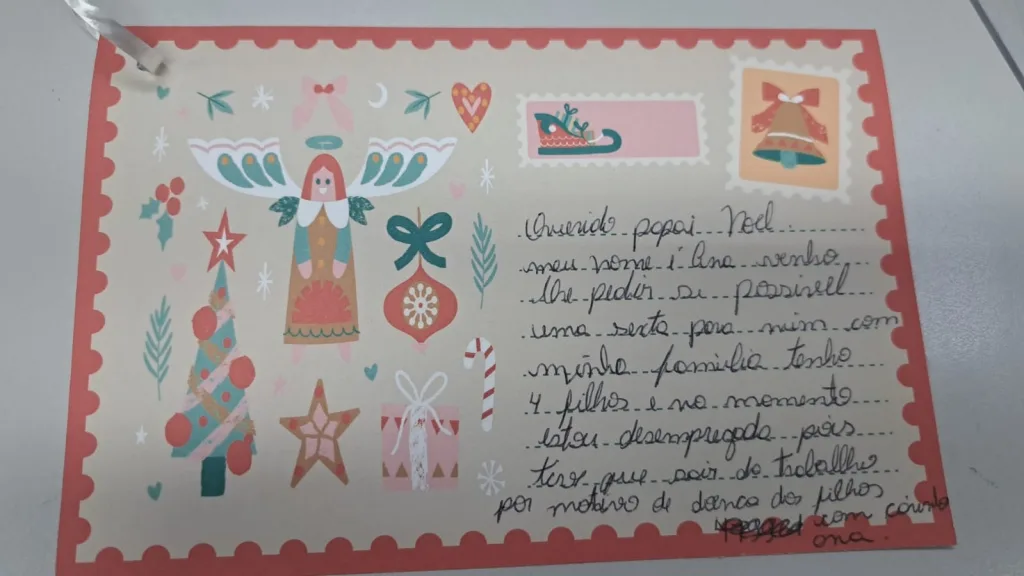 Querido papai Noel
meu nome é Ana venho
lhe pedir se possivel
uma sexta para mim com
minha familia tenho
4 filhos e no momento
estou desempregada pois
tive que sair do trabalho
por motivo de doença dos filhos
com carinho
ana.